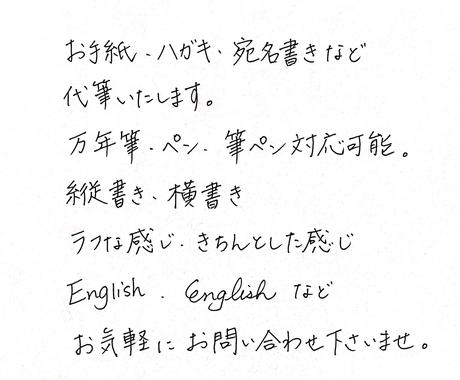 お手紙、ハガキ、宛名書きなど
代筆いたします。
万年筆、ペン、筆ペン対応可能。
縦書き、横書き
ラフな感じ、きちんとした感じ
English 、 English など
お気軽にお問い合わせ下さいませ。